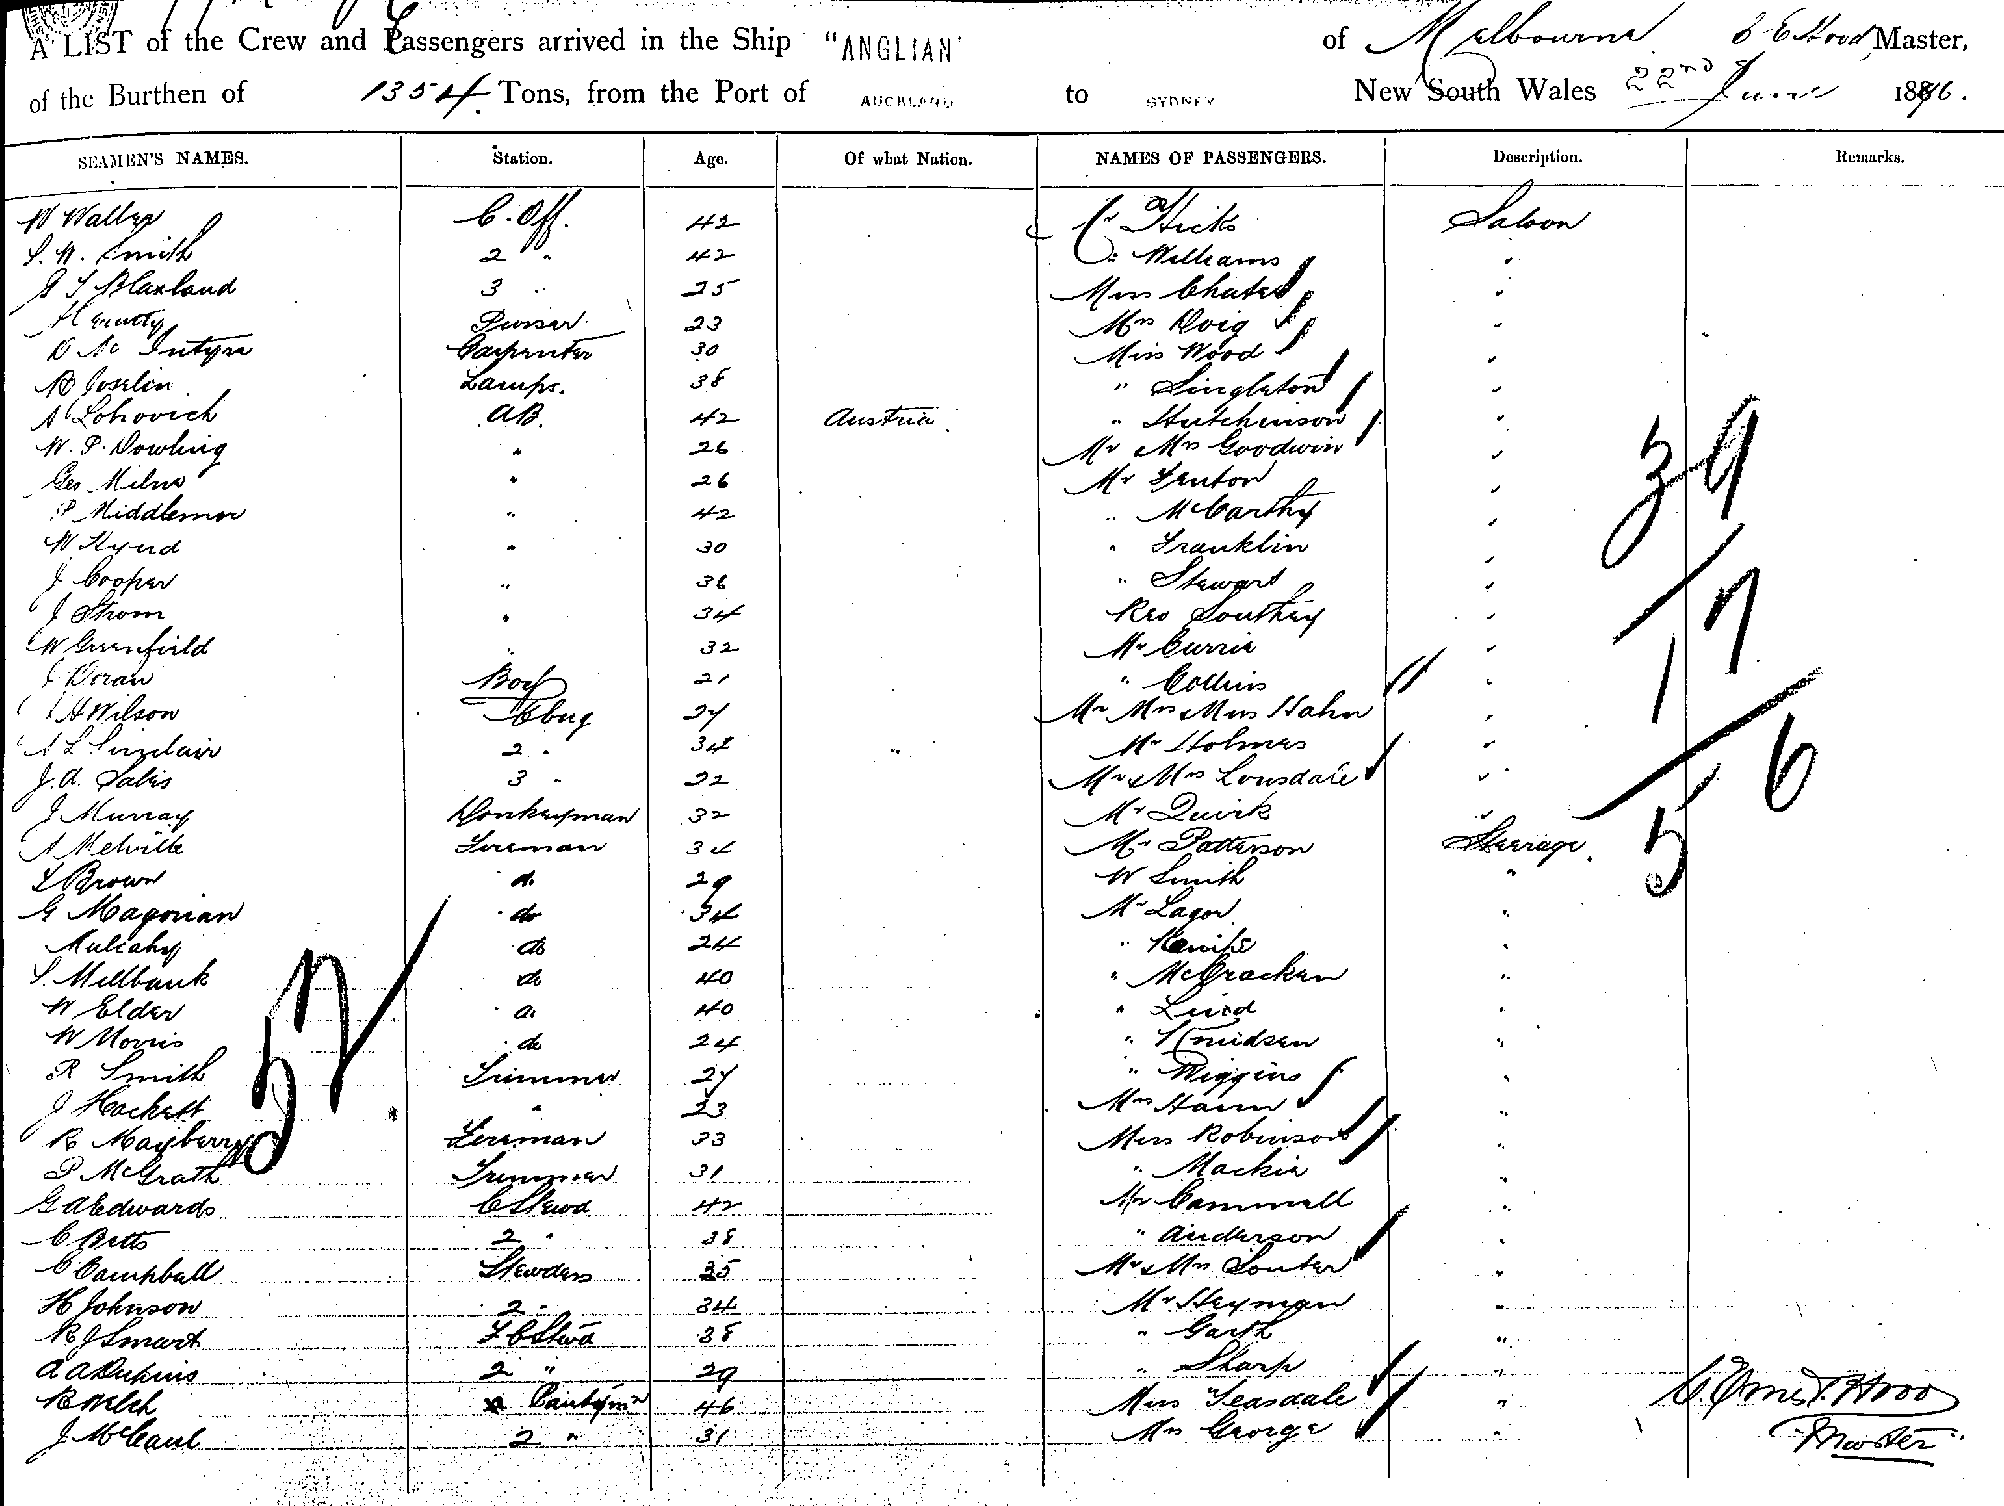 A LIST of the Crew and Passengers arrived in the Ship "ANGLIAN" of Melbourne Hood Master,
of the Burthen of 1354 Tons, from the Port of AUCKLAND to SYDNEY New South Wales 22nd June 1896.
SEAMEN'S NAMES. Station. Age. Of what Nation. NAMES OF PASSENGERS. Description. Remarks.
W Waller C. Off. 42 Hicks Saloon
S. W. Smith 2 " 42 " Williams "
G S Blaxland 3 " 25 Miss Chater "
Purser 23 Mrs Doig "
D Mc Intyre Carpenter 30 Miss Wood "
R Joselin Lamps. 38 " Singleton "
A Lohovich AB. 42 Austria " Hutchinson "
W. P. Dowling " 26 Mr Mrs Goodwin "
Geo Milne " 26 Mr Fenton "
P Middlemor " 42 " McCarthy "
W " 30 " Franklin "
J Cooper " 36 " Stewart "
J Strom " 34 Rev Southey "
W Greenfield " 32 Mr Currie "
J Doran Boy 21 " Collins "
H Wilson C Eng 27 Mr Mrs Miss Hahn "
A L Sinclair 2 " 34 " Mr Holmes "
J. A. 3 " 22 Mr & Mrs Lonsdale "
J Murray Donkeyman 32 Mr Quirk "
A Melville Fireman 34 Mr Patterson Steerage
L Brown do 29 W Smith "
G Magorian do 34 Mr Lagor "
Mulcahy do 24 "
S. Millbank do 40 " McCracken "
W Elder do 40 " Laird "
W Morris do 24 " Knudsen "
R Smith Trimmer 27 " Wiggins "
J Hackett " 23 Mrs "
R Mayberry Fireman 33 Miss Robinson "
P McGrath Trimmer 31 " Mackie "
G A Edwards C Stewd 42 Mr Cammell "
C Betts 2 " 38 " Anderson "
C Campbell Stewdess 35 Mr Mrs Souter "
H Johnson 2 " 34 Mr Heyman "
R J Smart F C Stewd 38 " Garth "
2 " 29 " Sharp "
R Welch Pantrymn 46 Miss Teasdale "
J McCaul 2 " 31 Mrs George "
39
17
56
57
C. Ernest Hood
Master